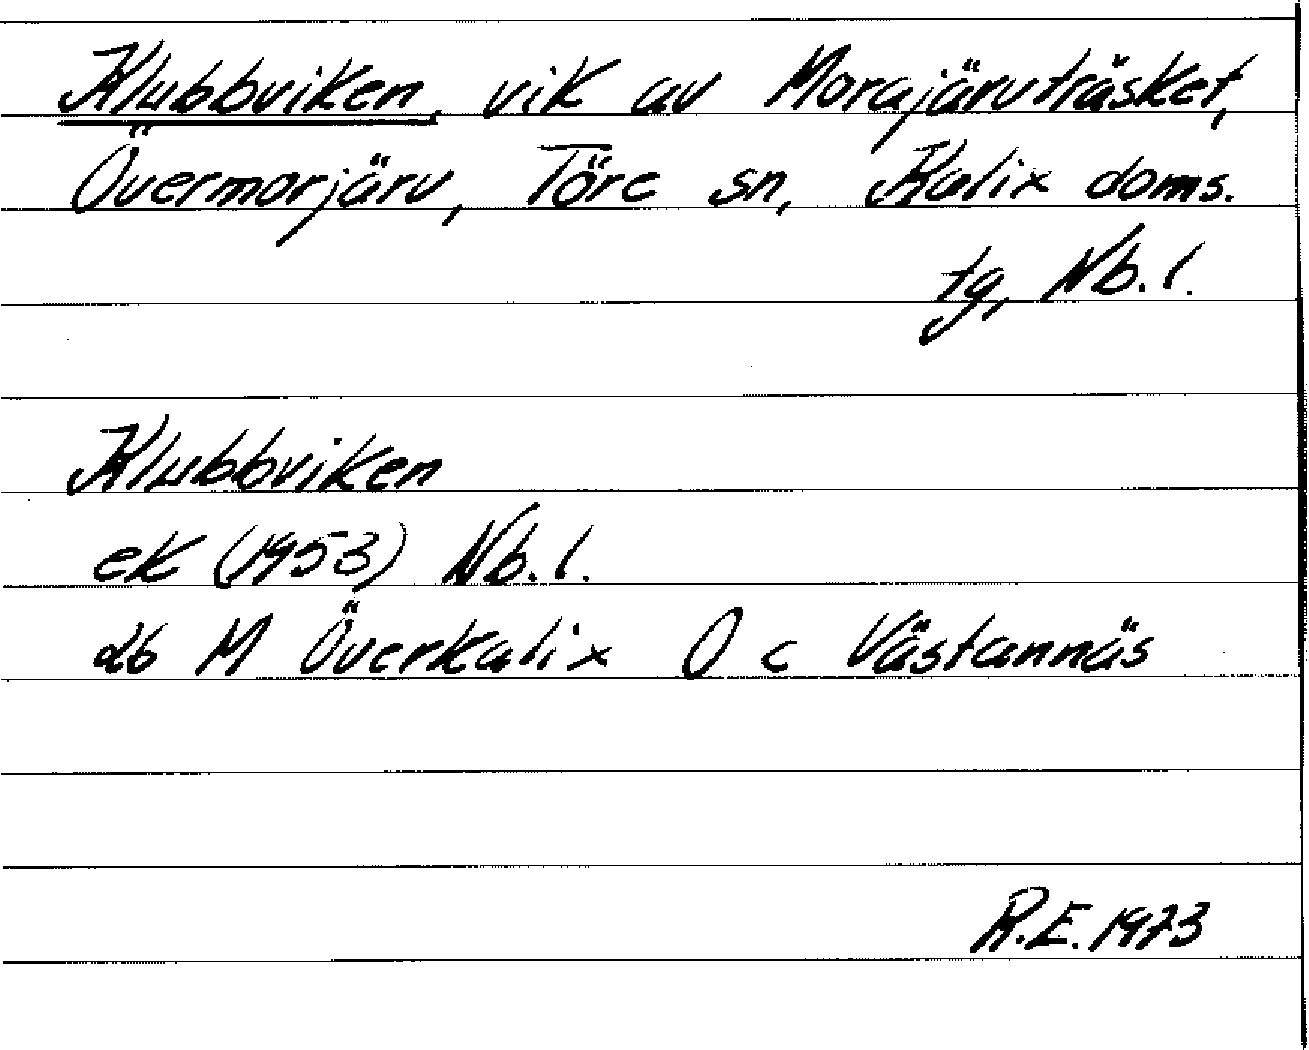 Klubbviken, vik av Morajärvträsket,
Övermorjärv, Töre sn, Kalix doms.
tg, Nb. l.
Klubbviken
ek (1953) Nb. l.
26 M Överkalix O c Västannäs
R.E. 1973